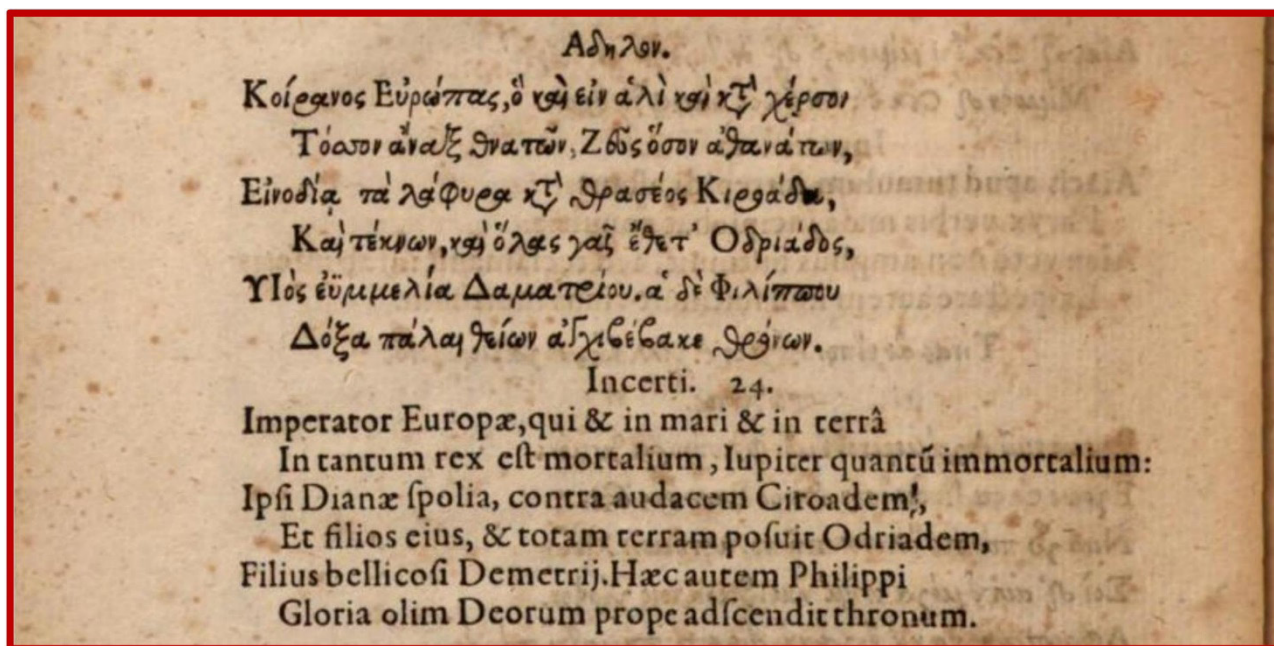 Αδηλον.
Κοίρανος Εὐρώπας, ὃ καὶ εἰν ἁλὶ καὶ κτ̀ χέρσον
Τόσσον ἄναξ θνατῶν, Ζεὺς ὅσον ἀθανάτων,
Εἰνοδίᾳ τὰ λάφυρα κτ̀ θρασέος Κιροάδου,
Καὶ τέκνων, καὶ ὅλας γᾶς ἔθετ' Οδριάδος,
ΥΙὸς ἐϋμμελία Δαματρίου. ἁ δὲ Φιλίππου
Δόξα πάλαι θείων ἄγχι βέβακε θρόνων.
Incerti. 24.
Imperator Europæ, qui & in mari & in terrâ
In tantum rex eſt mortalium, Iupiter quantū immortalium:
Ipſi Dianæ ſpolia, contra audacem Ciroadem,
Et filios eius, & totam terram poſuit Odriadem,
Filius bellicoſi Demetrij. Hæc autem Philippi
Gloria olim Deorum prope adſcendit thronum.